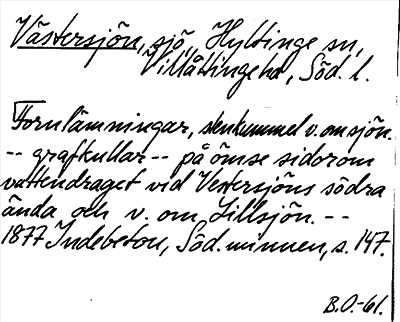 Västersjön, sjö, Hyltinge sn,
Villåttinge hd, Söd. l.
Fornlämningar, stenkummel v. om sjön.
-- grafkullar -- på ömse sidor om
vattendraget vid Vestersjöns södra
ända och v. om Lillsjön. --
1877 Indebetou, Söd. minnen, s. 147.
B.O.-61.